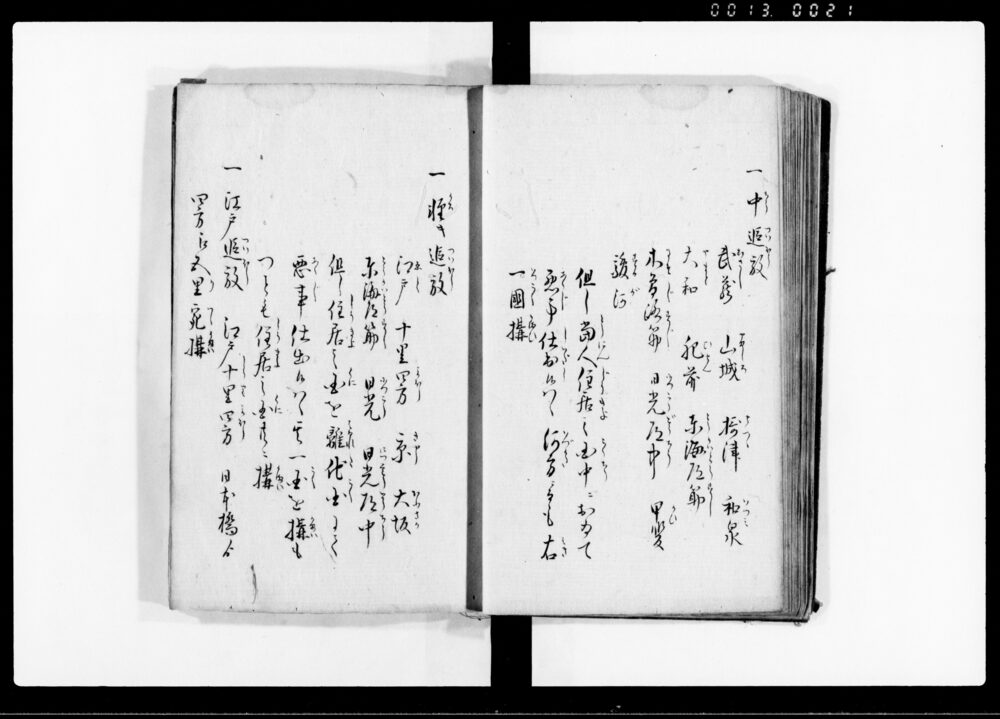 0013 0021
一 中追放
武蔵 山城 摂津 和泉
大和 肥前 東海道筋
木曽路筋 日光道中 甲斐
駿河
但し当人住居之国中ニおゐて
悪事仕出候ハヽ 何方ニても右
一國構
一 軽キ追放
江戸十里四方 京 大坂
東海道筋 日光 日光道中
但し住居之国を離 他国ニて
悪事仕出候ハヽ 其一国を構も
つとも住居之国共ニ構
一 江戸追放 江戸十里四方 日本橋ゟ
四方江五里宛構